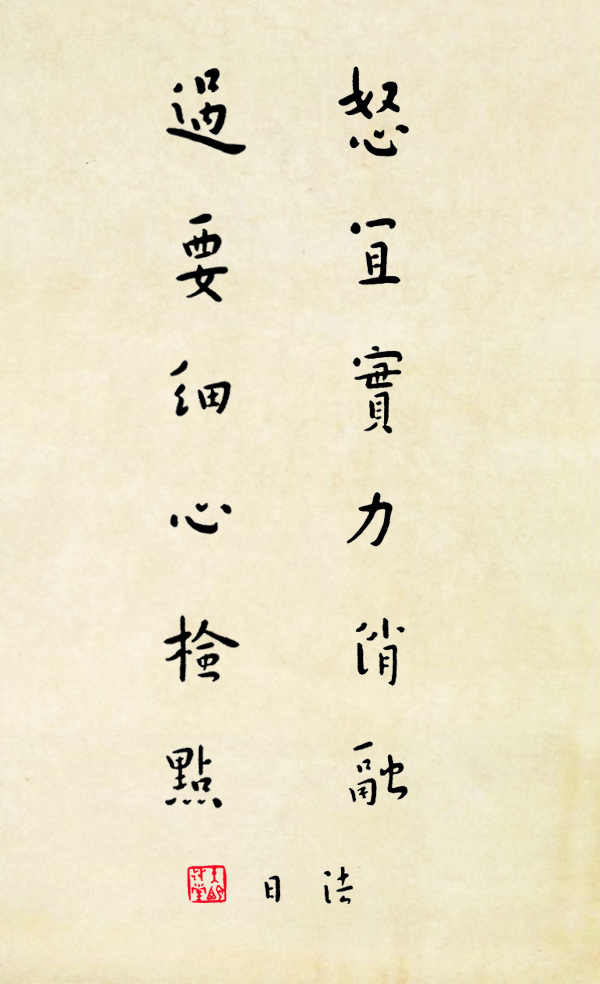 怒宜實力消融
過要細心檢點
法日